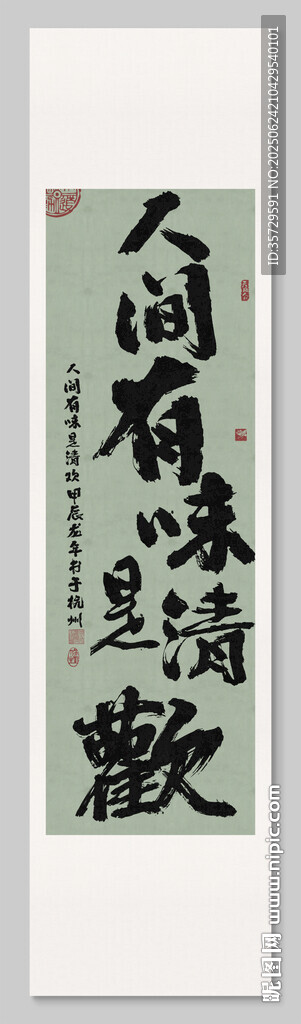 人间有味是清歡
人间有味是清欢甲辰龙年书于杭州
ID:35729591 NO:20250624210429540101
昵图网 www.nipic.com